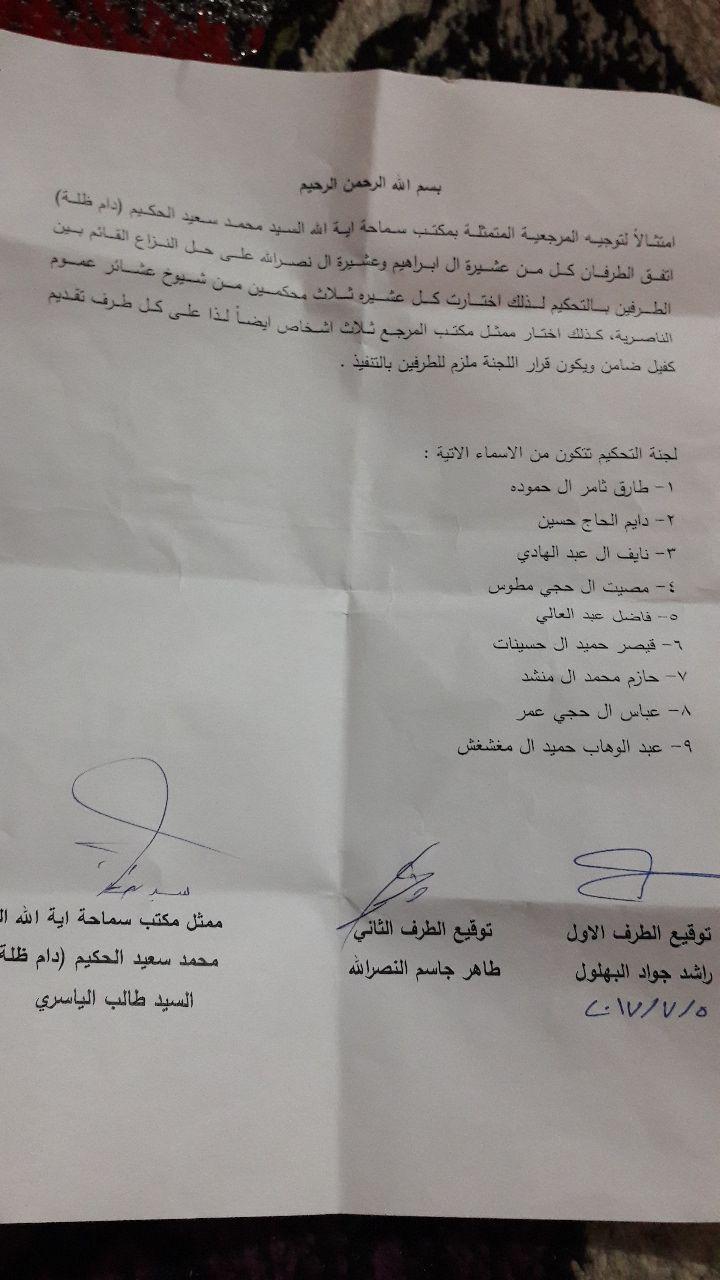 بسم الله الرحمن الرحيم
امتثالاً لتوجيه المرجعية المتمثلة بمكتب سماحة اية الله السيد محمد سعيد الحكيم (دام ظلة)
اتفق الطرفان كل من عشيرة ال ابراهيم وعشيرة ال نصرالله على حل النزاع القائم بين
الطرفين بالتحكيم لذلك اختارت كل عشيره ثلاث محكمين من شيوخ عشائر عموم
الناصرية، كذلك اختار ممثل مكتب المرجع ثلاث اشخاص ايضاً لذا على كل طرف تقديم
كفيل ضامن ويكون قرار اللجنة ملزم للطرفين بالتنفيذ .
لجنة التحكيم تتكون من الاسماء الاتية :
١- طارق ثامر ال حموده
٢- دايم الحاج حسين
٣- نايف ال عبد الهادي
٤- مصيت ال حجي مطوس
٥- فاضل عبد العالي
٦- قيصر حميد ال حسينات
٧- حازم محمد ال منشد
٨- عباس ال حجي عمر
٩- عبد الوهاب حميد ال مغشغش
توقيع الطرف الاول
راشد جواد البهلول
٢٠١٧/٧/٥
توقيع الطرف الثاني
طاهر جاسم النصرالله
ممثل مكتب سماحة اية الله ال
محمد سعيد الحكيم (دام ظلة
السيد طالب الياسري